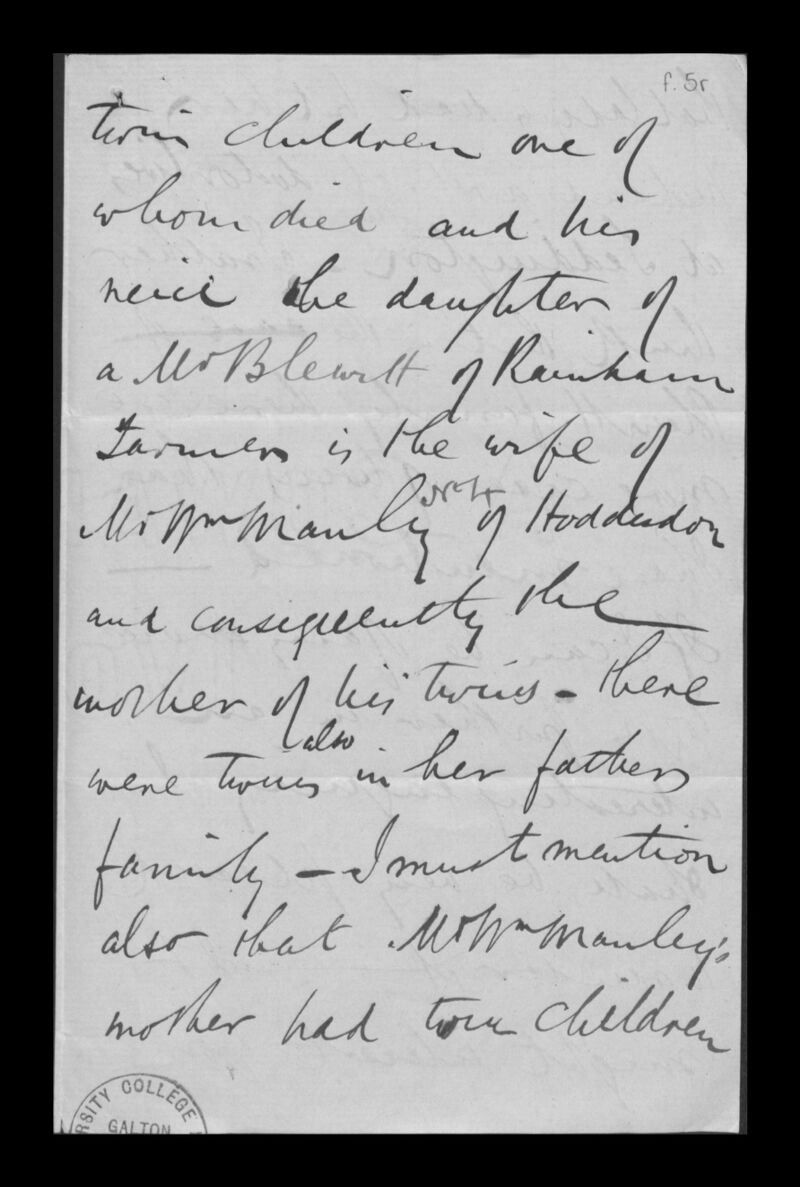 f. 5r
twin children one of
whom died and his
neice the daughter of
a Mr Blewitt of Rainham
Farmers is the wife of
Mr Wm Manley of Hoddesdon
and consequently the
mother of his twins – there
were twins also in her fathers
family – I must mention
also that Mr Wm Manley's
mother had twin children
RSITY COLLEGE
GALTON